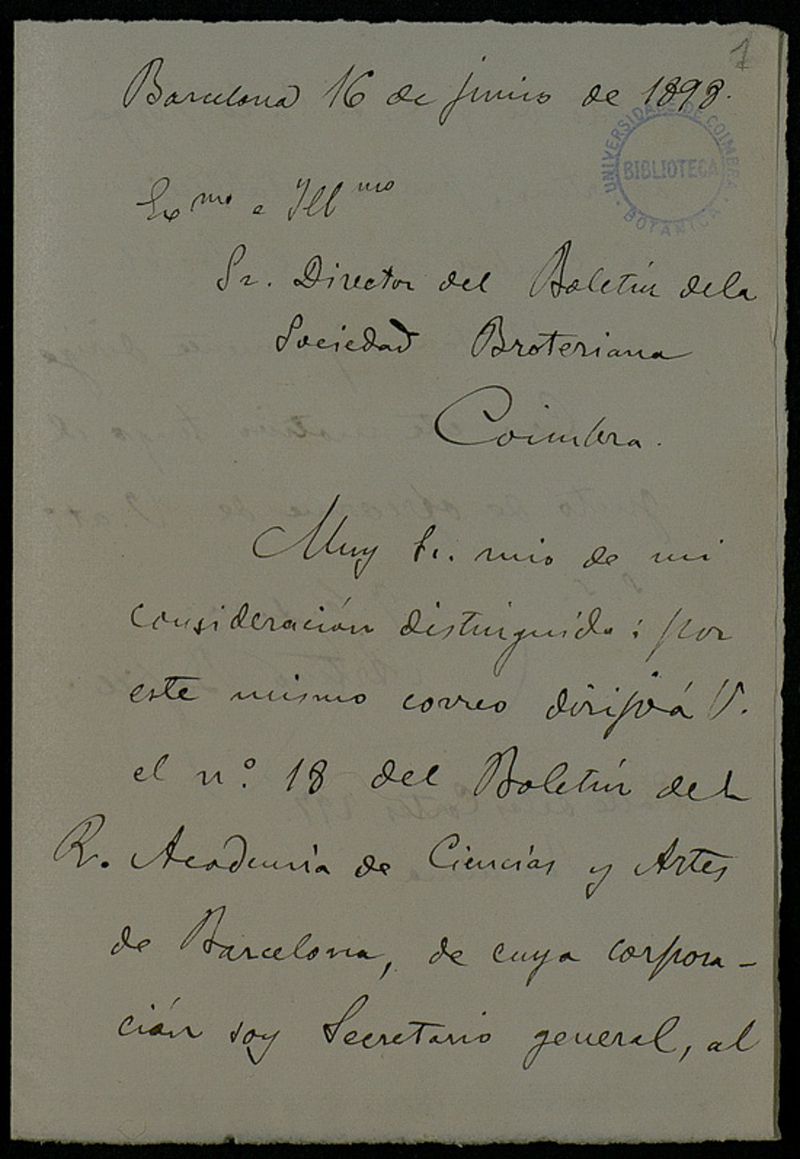 1
Barcelona 16 de junio de 1898.
UNIVERSIDADE DE COIMBRA
BIBLIOTECA
BOTANICA
Exmo e Illmo
Sr. Director del Boletín dela
Sociedad Broteriana
Coimbra.
Muy Sr. mio de mi
consideración distinguida: por
este mismo correo dirijo á V.
el n.º 18 del Boletín de la
R. Academia de Ciencias y Artes
de Barcelona, de cuya corpora-
ción soy Secretario general, al